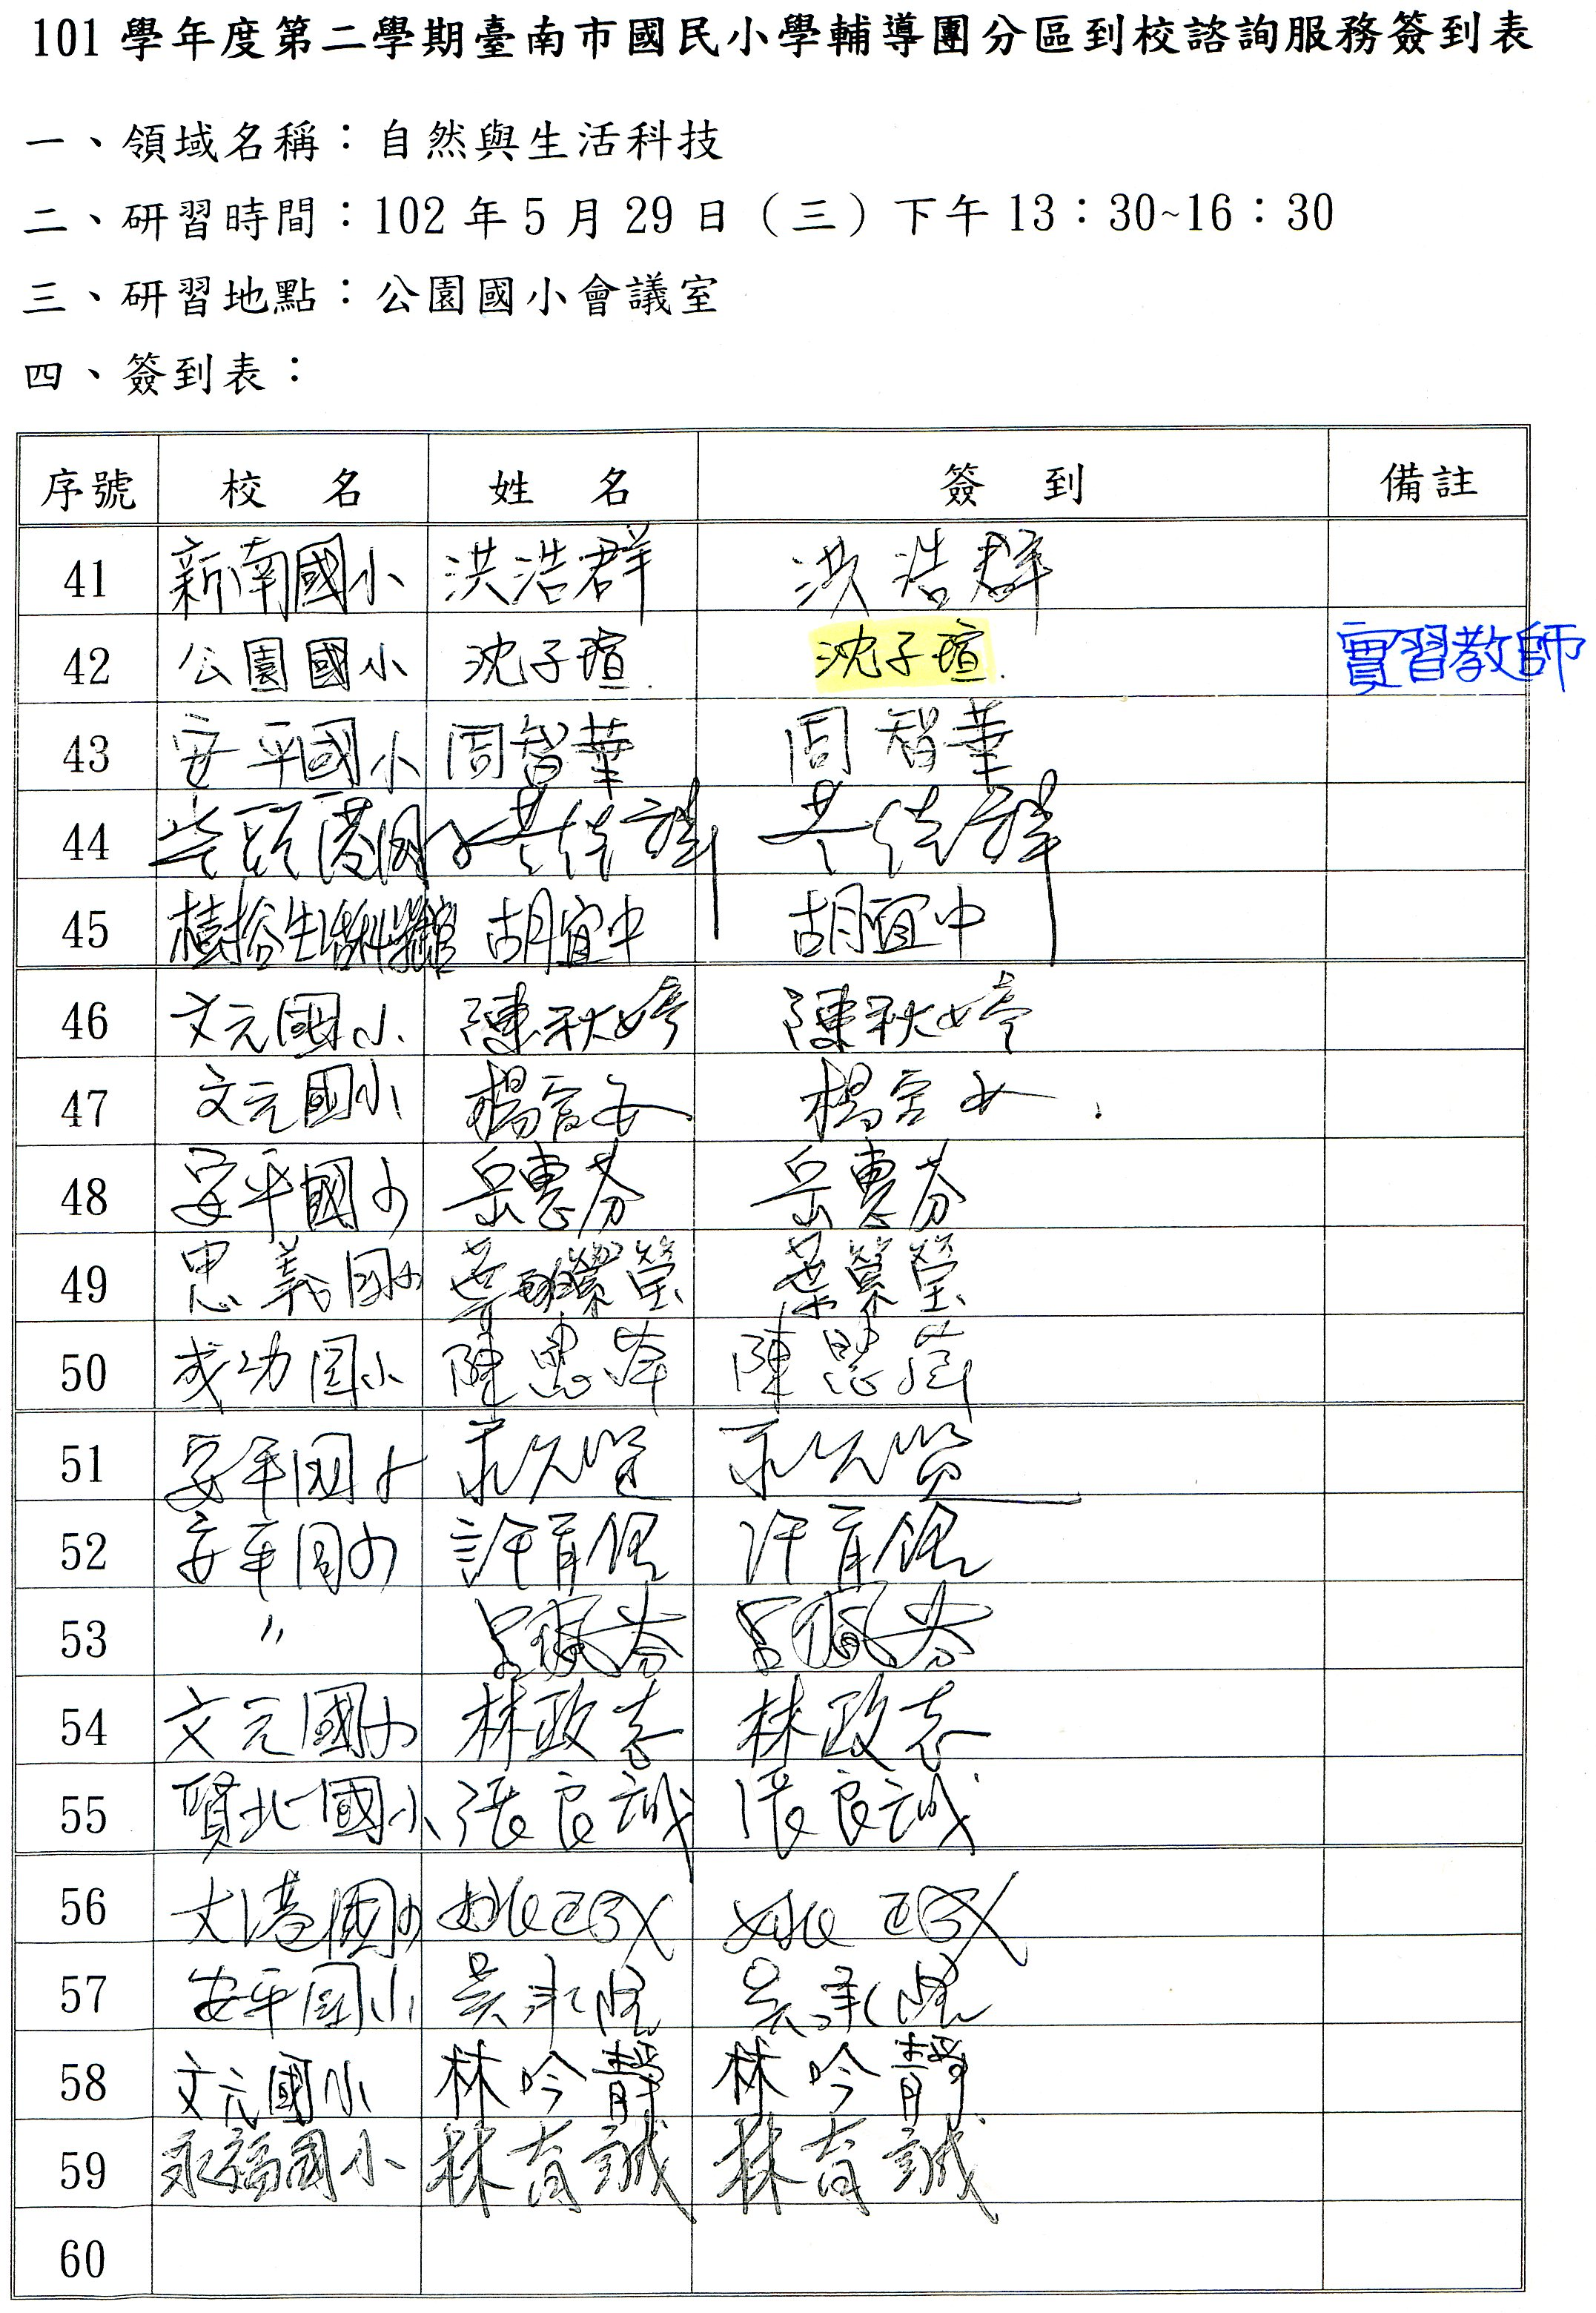 101 學年度第二學期臺南市國民小學輔導團分區到校諮詢服務簽到表
一、領域名稱：自然與生活科技
二、研習時間：102 年 5 月 29 日（三）下午 13：30~16：30
三、研習地點：公園國小會議室
四、簽到表：
序號 校 名 姓 名 簽 到 備註
41 新南國小 洪浩群 洪浩群
42 公園國小 沈子瑄 沈子瑄 實習教師
43 安平國小 周智華 周智華
44
45 胡宜中 胡宜中
46 文元國小 陳秋婷 陳秋婷
47 文元國小 楊
48 安平國小 岳惠芬 岳惠芬
49 忠義國小 葉縈瑩 葉縈瑩
50 成功国小 陳 陳
51 安平国小
52 安平国小 許 許
53 〃
54 文元國小 林政志 林政志
55 賢北國小 張良誠 張良誠
56 文港國小 姚 姚
57 安平國小 吳承 吳承
58 文元國小 林吟靜 林吟靜
59 永福國小 林育誠 林育誠
60